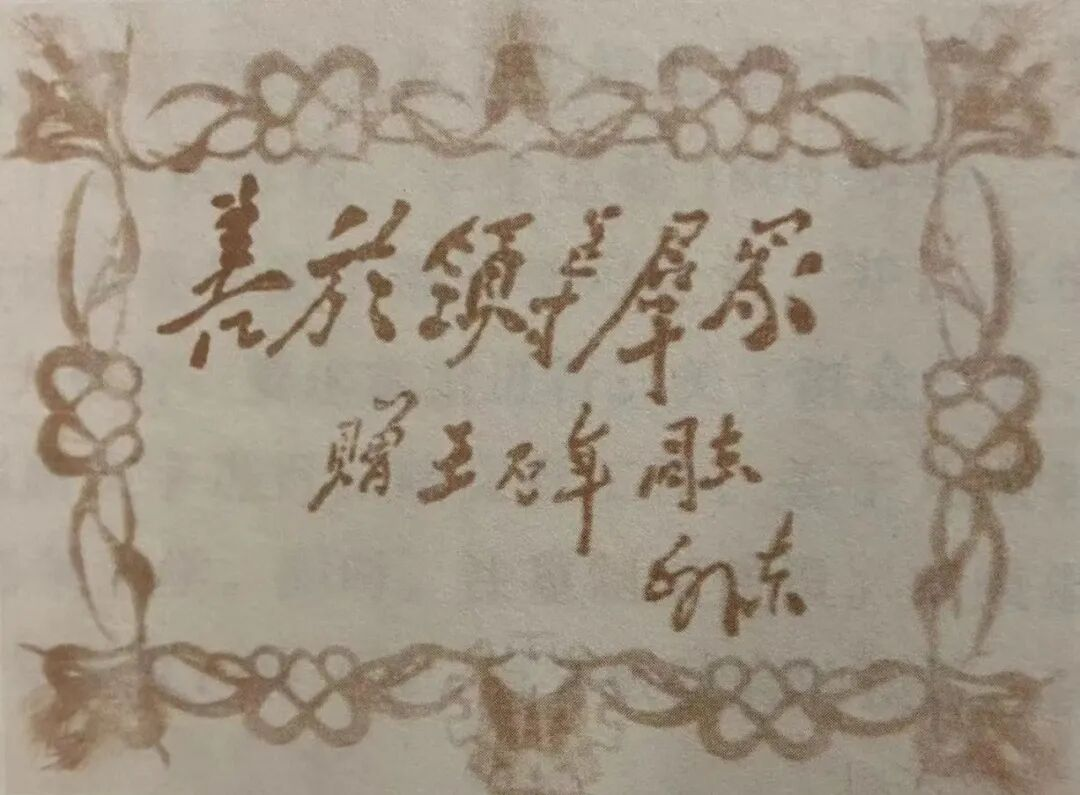 善於領導羣衆
贈王丕年同志
毛澤東